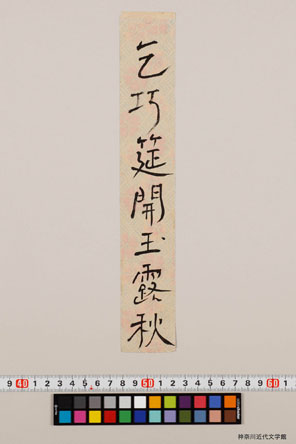 乞巧筵開玉露秋
9 40 1 2 3 4 5 6 7 8 9 50 1 2 3 4 5 6 7 8 9 60 1
神奈川近代文学館